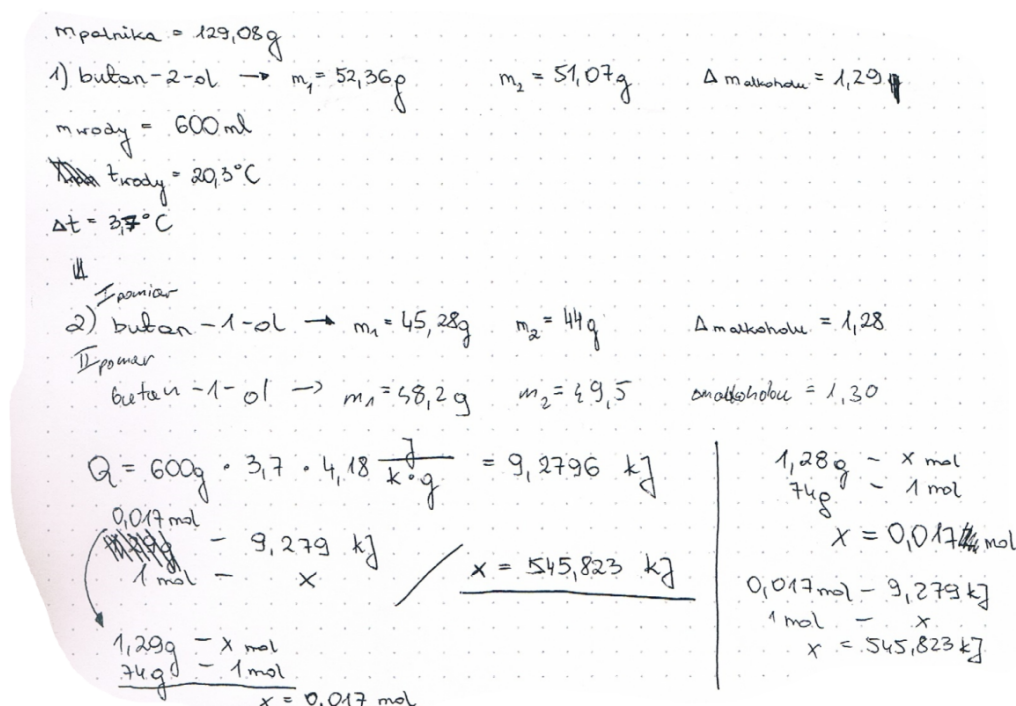 mpalnika = 129,08g
1) butan-2-ol → m₁ = 52,36g m₂ = 51,07g Δmalkoholu = 1,29
mwody = 600 ml
twody = 20,3°C
Δt = 3,7°C
I pomiar
2) butan-1-ol → m₁ = 45,28g m₂ = 44g Δmalkoholu = 1,28
II pomiar
butan-1-ol → m₁ = 48,2g m₂ = 49,5 Δmalkoholu = 1,30
Q = 600g · 3,7 · 4,18 J/k·g = 9,2796 kJ
0,017 mol – 9,279 kJ
1 mol – x
x = 545,823 kJ
1,29g – x mol
74g – 1 mol
x = 0,017 mol
1,28g – x mol
74g – 1 mol
x = 0,017 mol
0,017 mol – 9,279 kJ
1 mol – x
x = 545,823 kJ